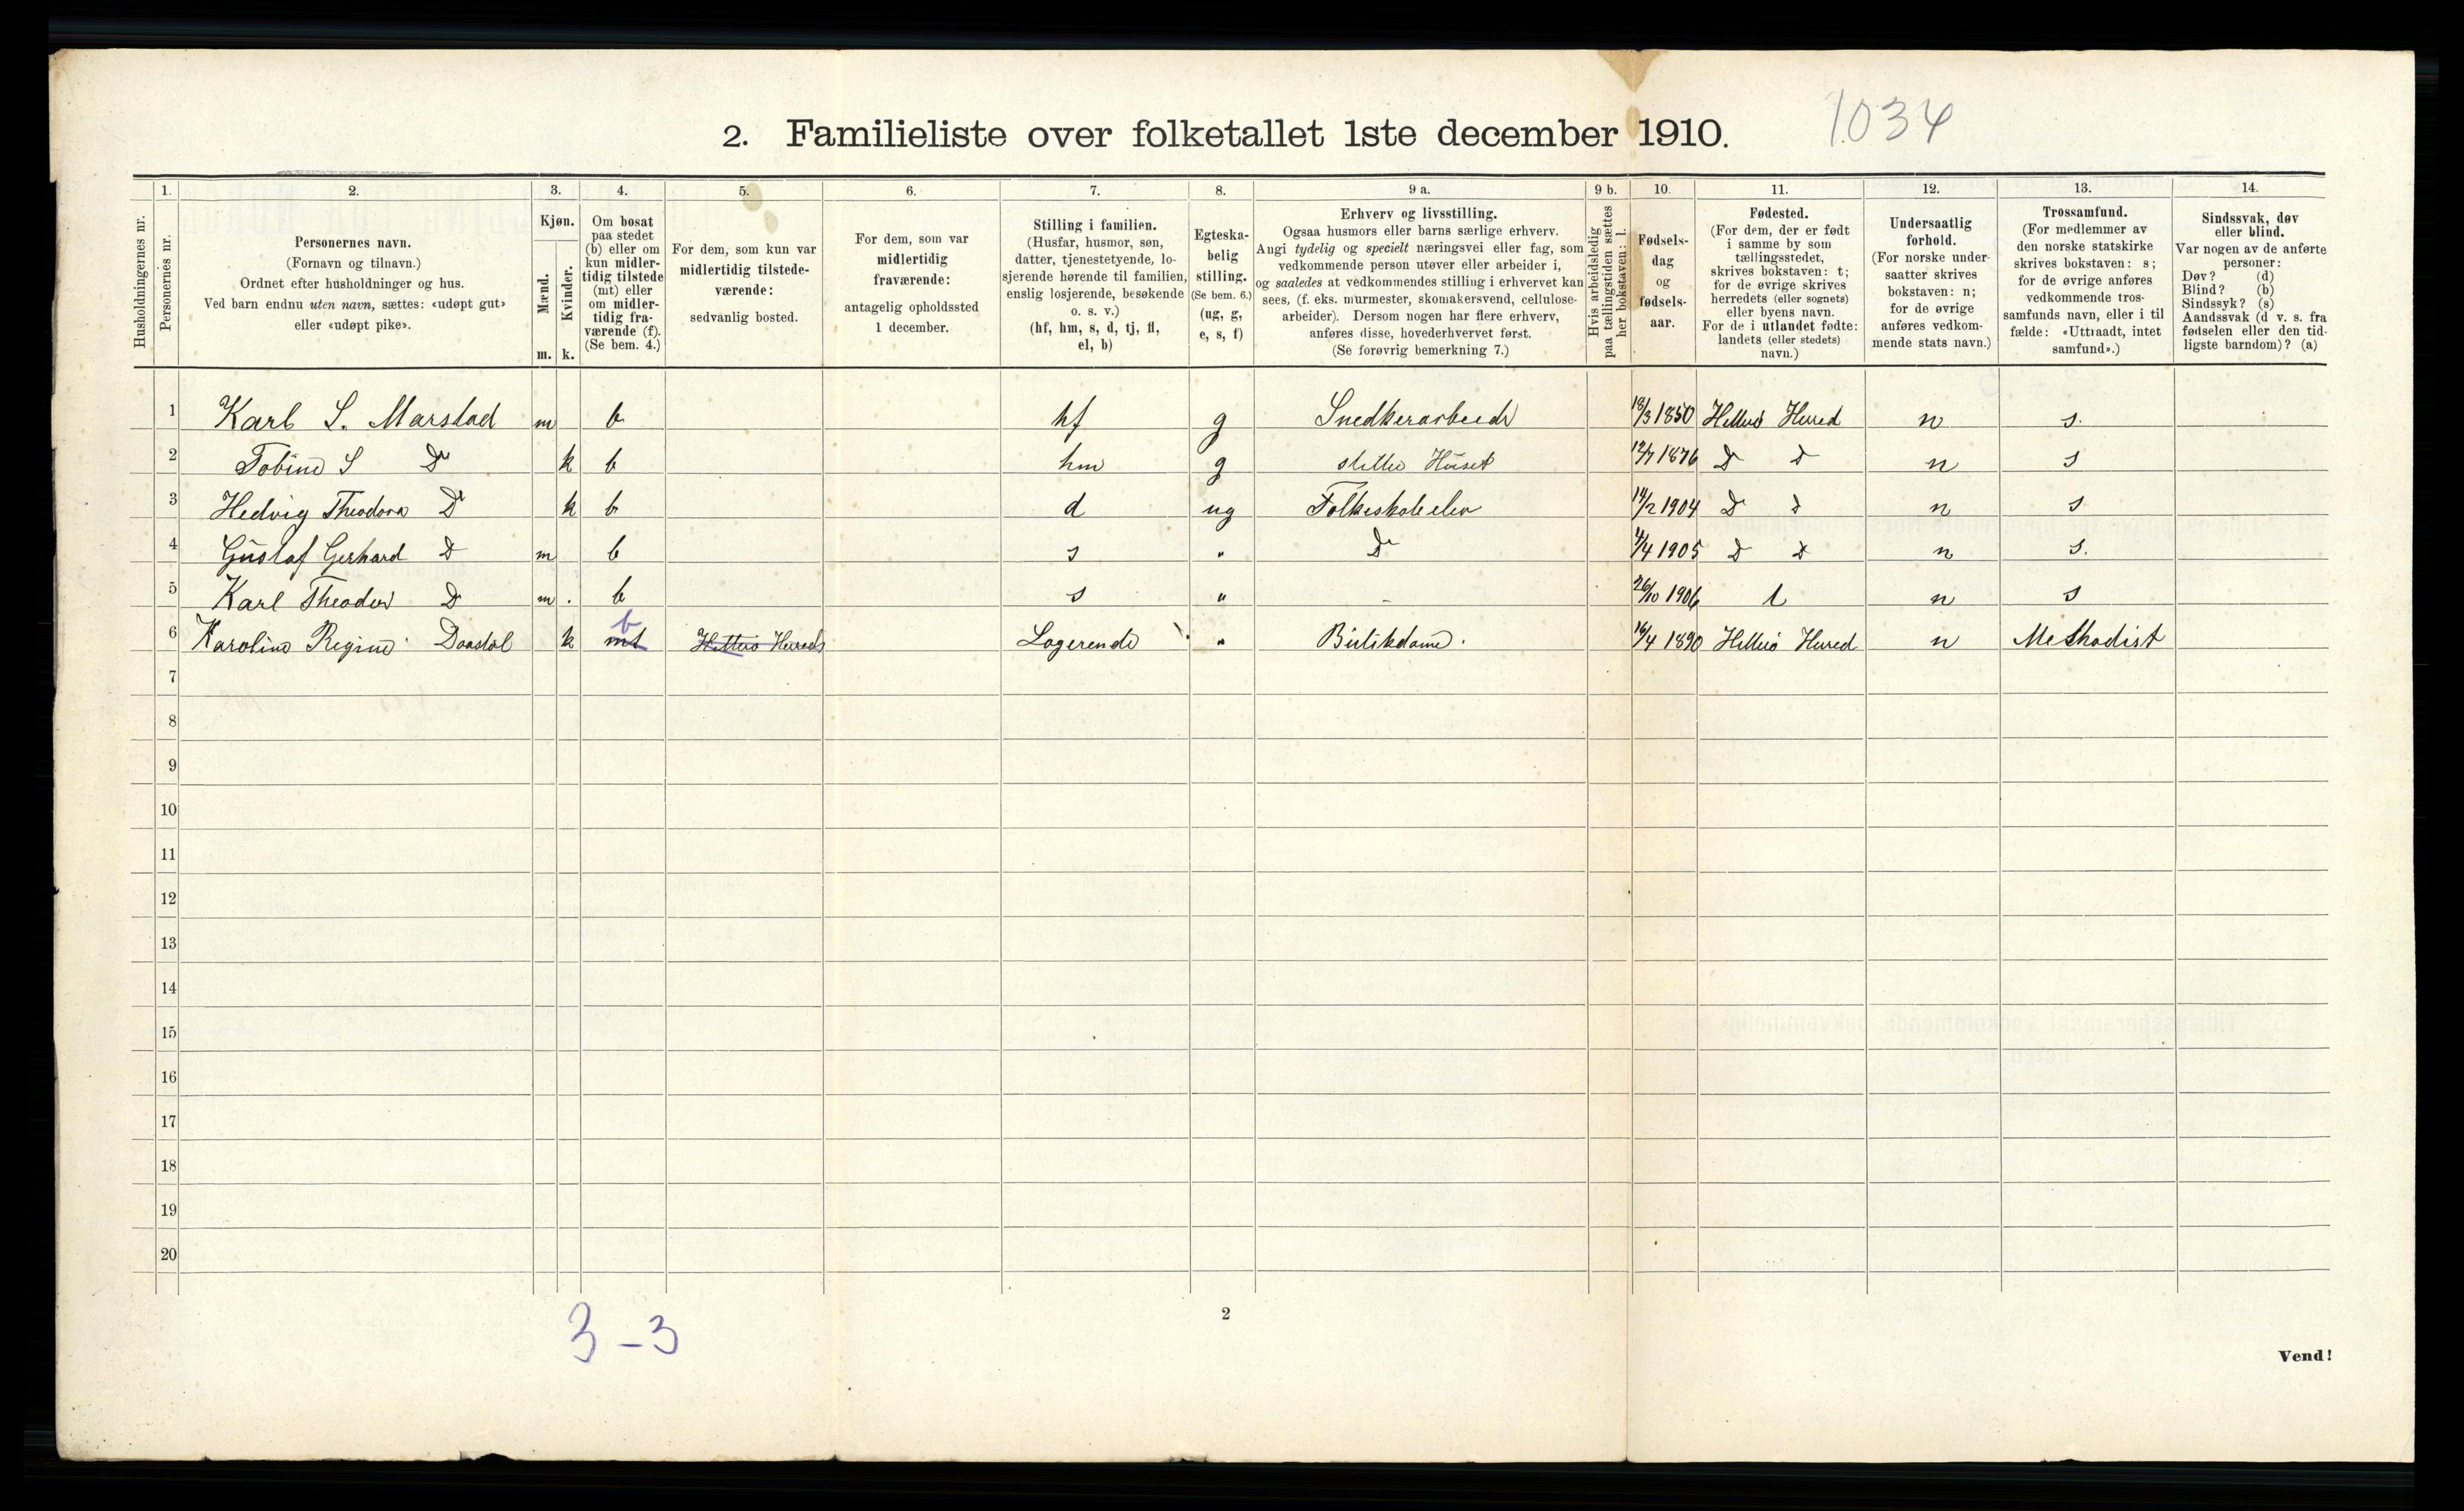 1034
2. Familieliste over folketallet 1ste december 1910.
Husholdningernes nr.
1. Personernes nr.
2. Personernes navn. (Fornavn og tilnavn.) Ordnet efter husholdninger og hus. Ved barn endnu uten navn, sættes: «udøpt gut» eller «udøpt pike».
3. Kjøn. Mænd. m. Kvinder. k.
4. Om bosat paa stedet (b) eller om kun midlertidig tilstede (mt) eller om midlertidig fraværende (f). (Se bem. 4.)
5. For dem, som kun var midlertidig tilstedeværende: sedvanlig bosted.
6. For dem, som var midlertidig fraværende: antagelig opholdssted 1 december.
7. Stilling i familien. (Husfar, husmor, søn, datter, tjenestetyende, losjerende hørende til familien, enslig losjerende, besøkende o. s. v.) (hf, hm, s, d, tj, fl, el, b)
8. Egteskabelig stilling. (Se bem. 6.) (ug, g, e, s, f)
9 a. Erhverv og livsstilling. Ogsaa husmors eller barns særlige erhverv. Angi tydelig og specielt næringsvei eller fag, som vedkommende person utøver eller arbeider i, og saaledes at vedkommendes stilling i erhvervet kan sees, (f. eks. murmester, skomakersvend, cellulosearbeider). Dersom nogen har flere erhverv, anføres disse, hovederhvervet først. (Se forøvrig bemerkning 7.)
9 b. Hvis arbeidsledig paa tællingstiden sættes her bokstaven: l.
10. Fødselsdag og fødselsaar.
11. Fødested. (For dem, der er født i samme by som tællingsstedet, skrives bokstaven: t; for de øvrige skrives herredets (eller sognets) eller byens navn. For de i utlandet fødte: landets (eller stedets) navn.)
12. Undersaatlig forhold. (For norske undersaatter skrives bokstaven: n; for de øvrige anføres vedkommende stats navn.)
13. Trossamfund. (For medlemmer av den norske statskirke skrives bokstaven: s; for de øvrige anføres vedkommende trossamfunds navn, eller i tilfælde: «Uttraadt, intet samfund».)
14. Sindssvak, døv eller blind. Var nogen av de anførte personer: Døv? (d) Blind? (b) Sindssyk? (s) Aandssvak (d v. s. fra fødselen eller den tidligste barndom)? (a)
1 Karl S. Marstad m b hf g Snedkerarbeide 18/3 1850 Hitterö Hered n s.
2 Tobine S Do k b hm g steller Huset 12/7 1876 D D n s
3 Hedvig Theodora D k b d ug Folkeskoleelev 14/2 1904 D D n s
4 Gustaf Gerhard D m b s " Do 4/4 1905 D D n s.
5 Karl Theodor D m. b s " - 26/10 1906 t n s
6 Karoline Regine Daastøl k mt b Hitterö Hereds Logerende " Butikdame. 16/4 1890 Hitterö Hered n Methodist
7
8
9
10
11
12
13
14
15
16
17
18
19
20
3 - 3
2
Vend!